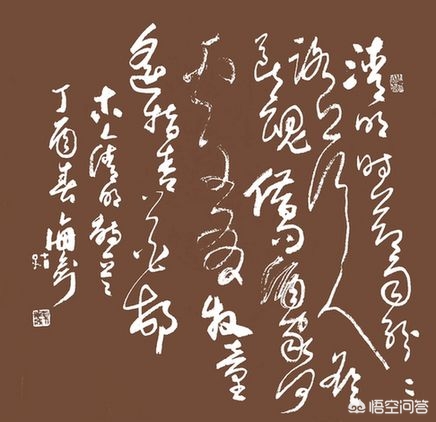 清明时节雨纷纷
路上行人欲
断魂借问酒家何
牧童
遥指杏花邨
清明诗
丁酉春海
悟空问答